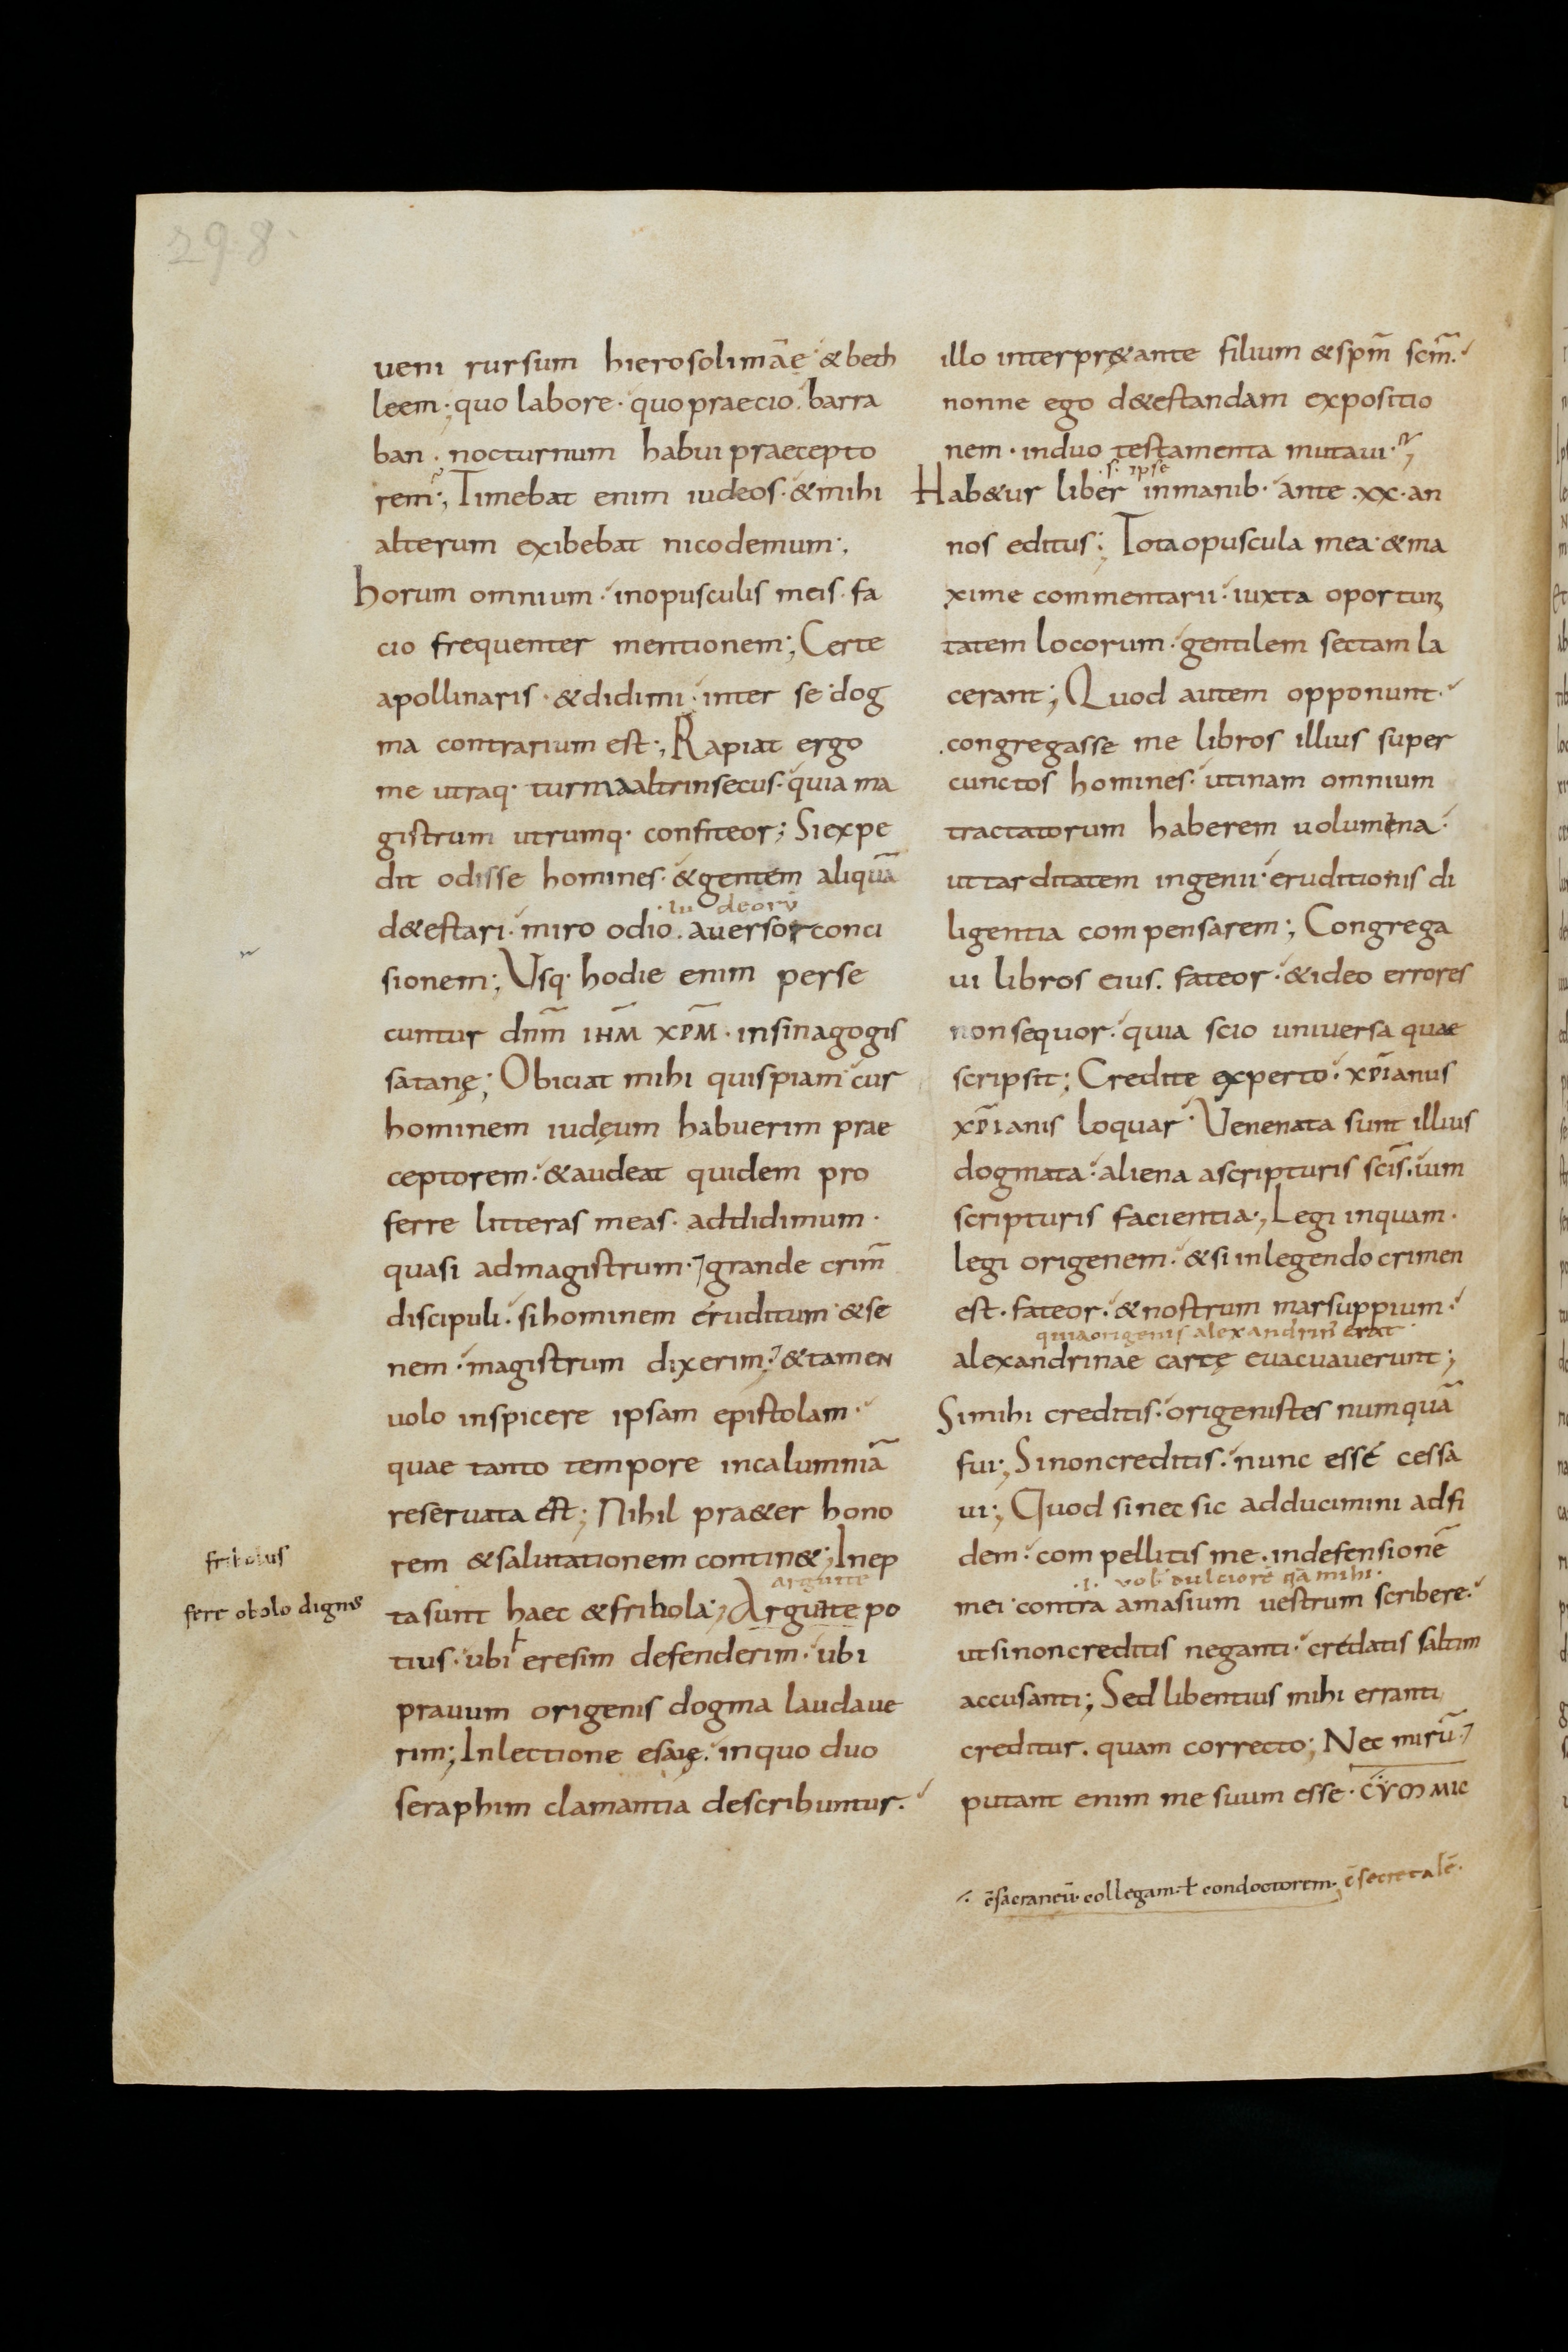 298
ueni rursum hierosolimāę & beth
leem; quo labore · quo praecio · barra
ban · nocturnum habui praecepto
rem; Timebat enim iudeos · & mihi
alterum exibebat nicodemum;
horum omnium · inopusculis meis · fa
cio frequenter mentionem; Certe
apollinaris · & didimi · inter se dog
ma contrarium est; Rapiat ergo
me utraq· turma altrinsecus · quia ma
gistrum utrumq· confiteor; Si expe
dit odisse homines · & gentem aliquā
· iu deorū
d&estari · miro odio · auersor conci
sionem; Vsq· hodie enim perse
cuntur dn̄m ihm̄ xpm̄ · insinagogis
satanę; Obiciat mihi quispiam cur
hominem iudęum habuerim prae
ceptorem · & audeat quidem pro
ferre litteras meas · ad didimum ·
quasi admagistrum · grande crim̄
discipuli · si hominem eruditum & se
nem · magistrum dixerim · & tamen
uolo inspicere ipsam epistolam ·
quae tanto tempore incalumniā
reseruata est; Nihil pra&er hono
rem & salutationem contin&; Inep
argute
ta sunt haec & fribola; Argute po
tius · ubi eresim defenderim · ubi
prauum origenis dogma laudaue
rim; Inlectione esaię · inquo duo
seraphim clamantia describuntur ·
fribolus
fere obolo dignus
illo interpr&ante filium & spm̄ scm̄ ·
nonne ego d&estandam expositio
nem · induo testamenta mutaui ·
· s · ipse
Hab&ur liber inmanib· ante · xx · an
nos editus; Tota opuscula mea · & ma
xime commentarii · iuxta oportuni
tatem locorum · gentilem sectam la
cerant; Quod autem opponunt ·
congregasse me libros illius super
cunctos homines · utinam omnium
tractatorum haberem uolumina ·
ut tarditatem ingenii · eruditionis di
ligentia compensarem; Congrega
ui libros eius · fateor · & ideo errores
non sequor · quia scio uniuersa quae
scripsit; Credite experto · xp̄ianus
xp̄ianis loquar · Venenata sunt illius
dogmata · aliena ascripturis sc̄is · uim
scripturis facientia; Legi inquam ·
legi origenem · & si inlegendo crimen
est · fateor · & nostrum marsuppium ·
quia origenis alexandrin' erat
alexandrinae cartę euacuauerunt;
Simihi creditis · origenistes numquā
fui; Sinoncreditis · nunc esse cessa
ui; Quod si nec sic adducimini adfi
dem · compellitis me · indefensionē
· i · uob' dulciorē quā mihi ·
mei contra amasium uestrum scribere ·
ut sinoncreditis neganti · credatis saltim
accusanti; Sed libentius mihi erranti
creditur · quam correcto; Nec mirū ·
putant enim me suum esse · CYMMIC
ē sacraneū · collegam · ł condoctorem · ē secretalē ·